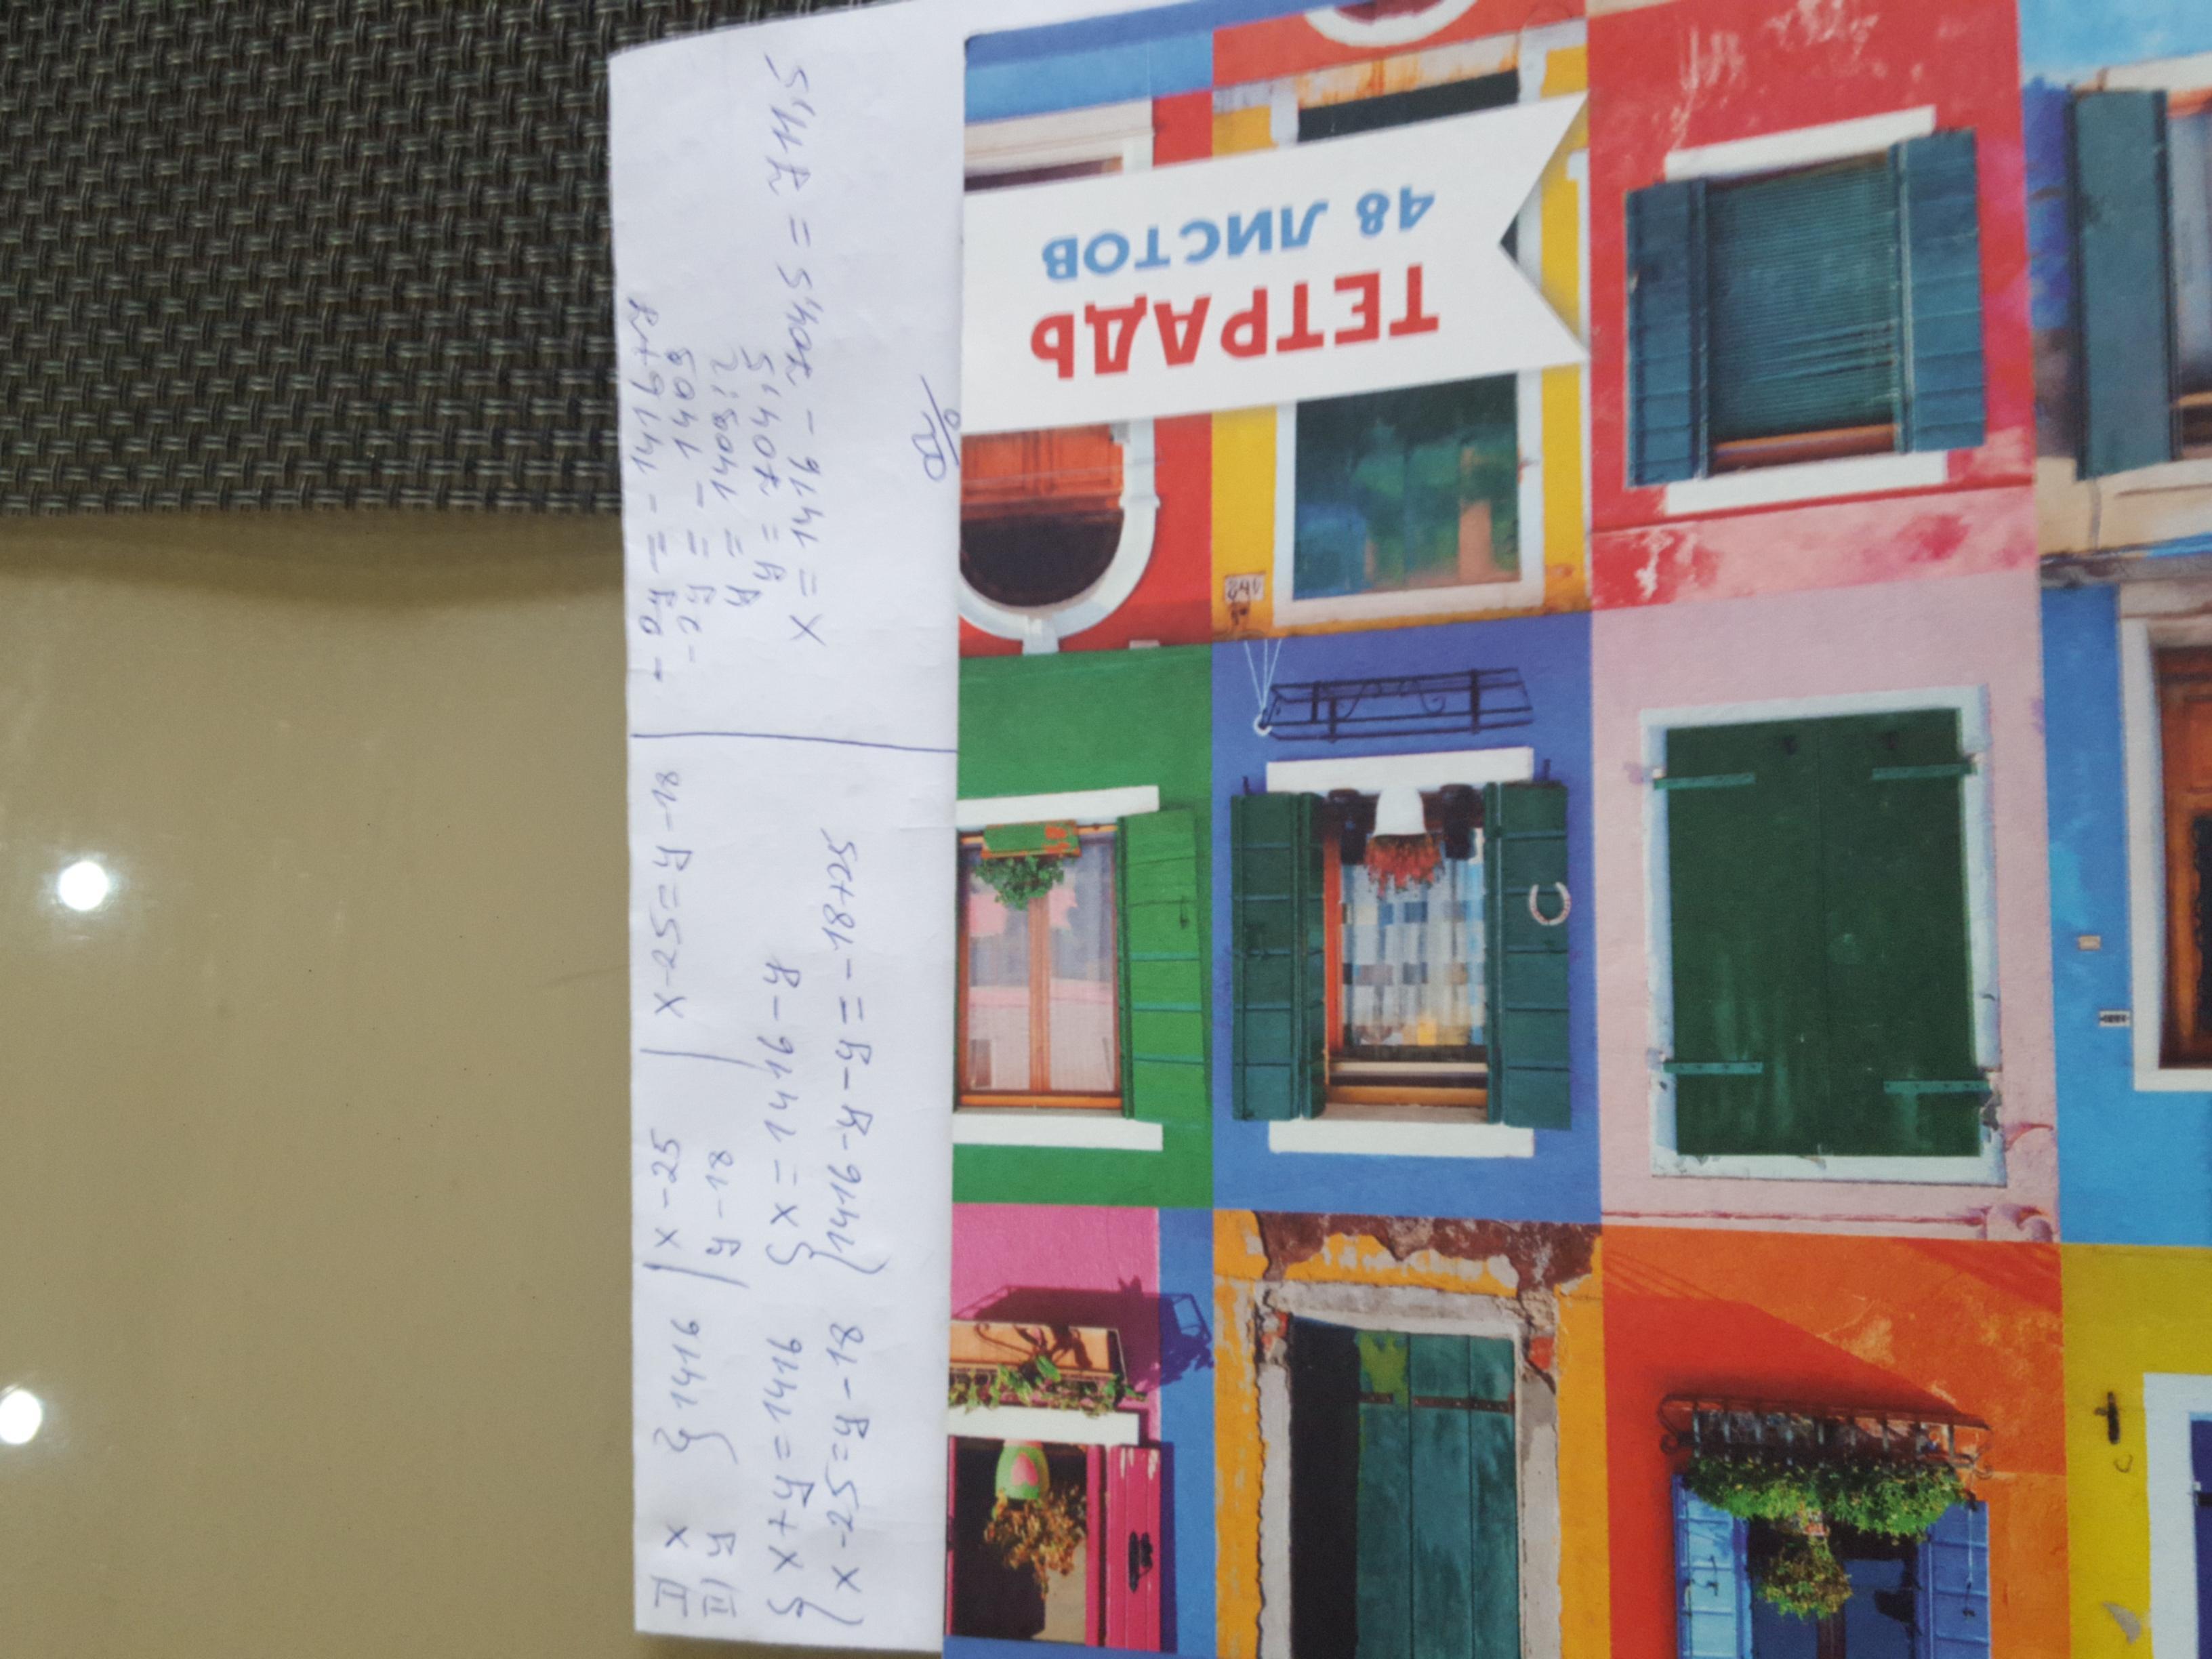 I x } 1416 | x-25 | x-25=y-18
II y | y-18
{ x+y=1416 { x=1416-y
x-25=y-18 1416-y-y=-18+25
-2y=-1416+7
-2y=-1409
y=1409:2
y=704,5
x=1416-704,5=711,5
ТЕТРАДЬ
48 ЛИСТОВ